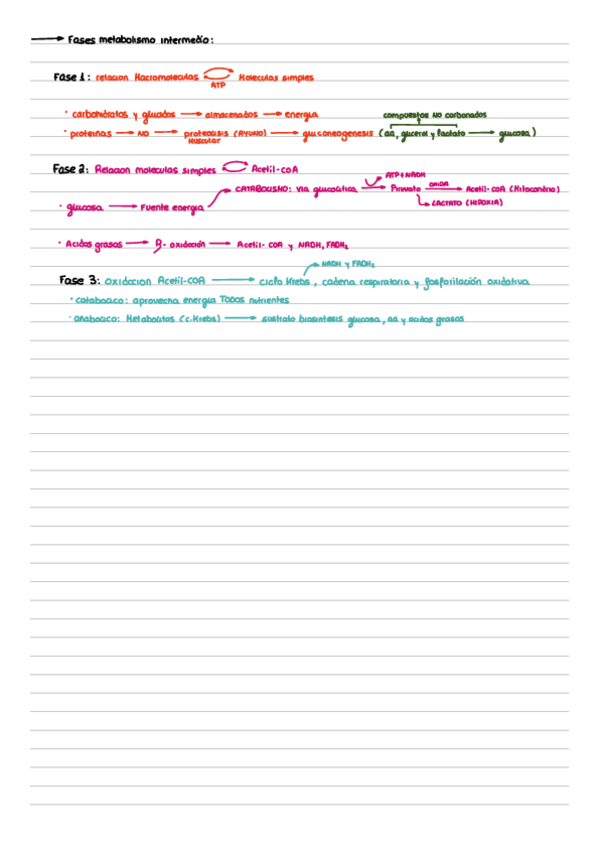 → Fases metabolismo intermedio:
Fase 1: relacion Macromoleculas ⇄ Moleculas simples
ATP
· carbohidratos y glucidos → almacenados → energia
compuestos NO carbonados
· proteinas → NO → proteolisis (AYUNO) → gluconeogenesis (aa, glicerol y lactato → glucosa)
Muscular
Fase 2: Relacion moleculas simples ⇄ Acetil-coA
ATP+NADH
· glucosa → Fuente energia → CATABOLISMO: Via glucolitica → Piruvato OXIDA → Acetil-coA (Mitocondria)
LACTATO (HIPOXIA)
· Acidos grasos → β-oxidación → Acetil-coA y NADH, FADH₂
NADH y FADH₂
Fase 3: oxidacion Acetil-COA → ciclo Krebs, cadena respiratoria y fosforilación oxidativa
· catabolico: aprovecha energia TODOS nutrientes
· anabolico: Metabolitos (c.Krebs) → sustrato biosintesis glucosa, aa y acidos grasos